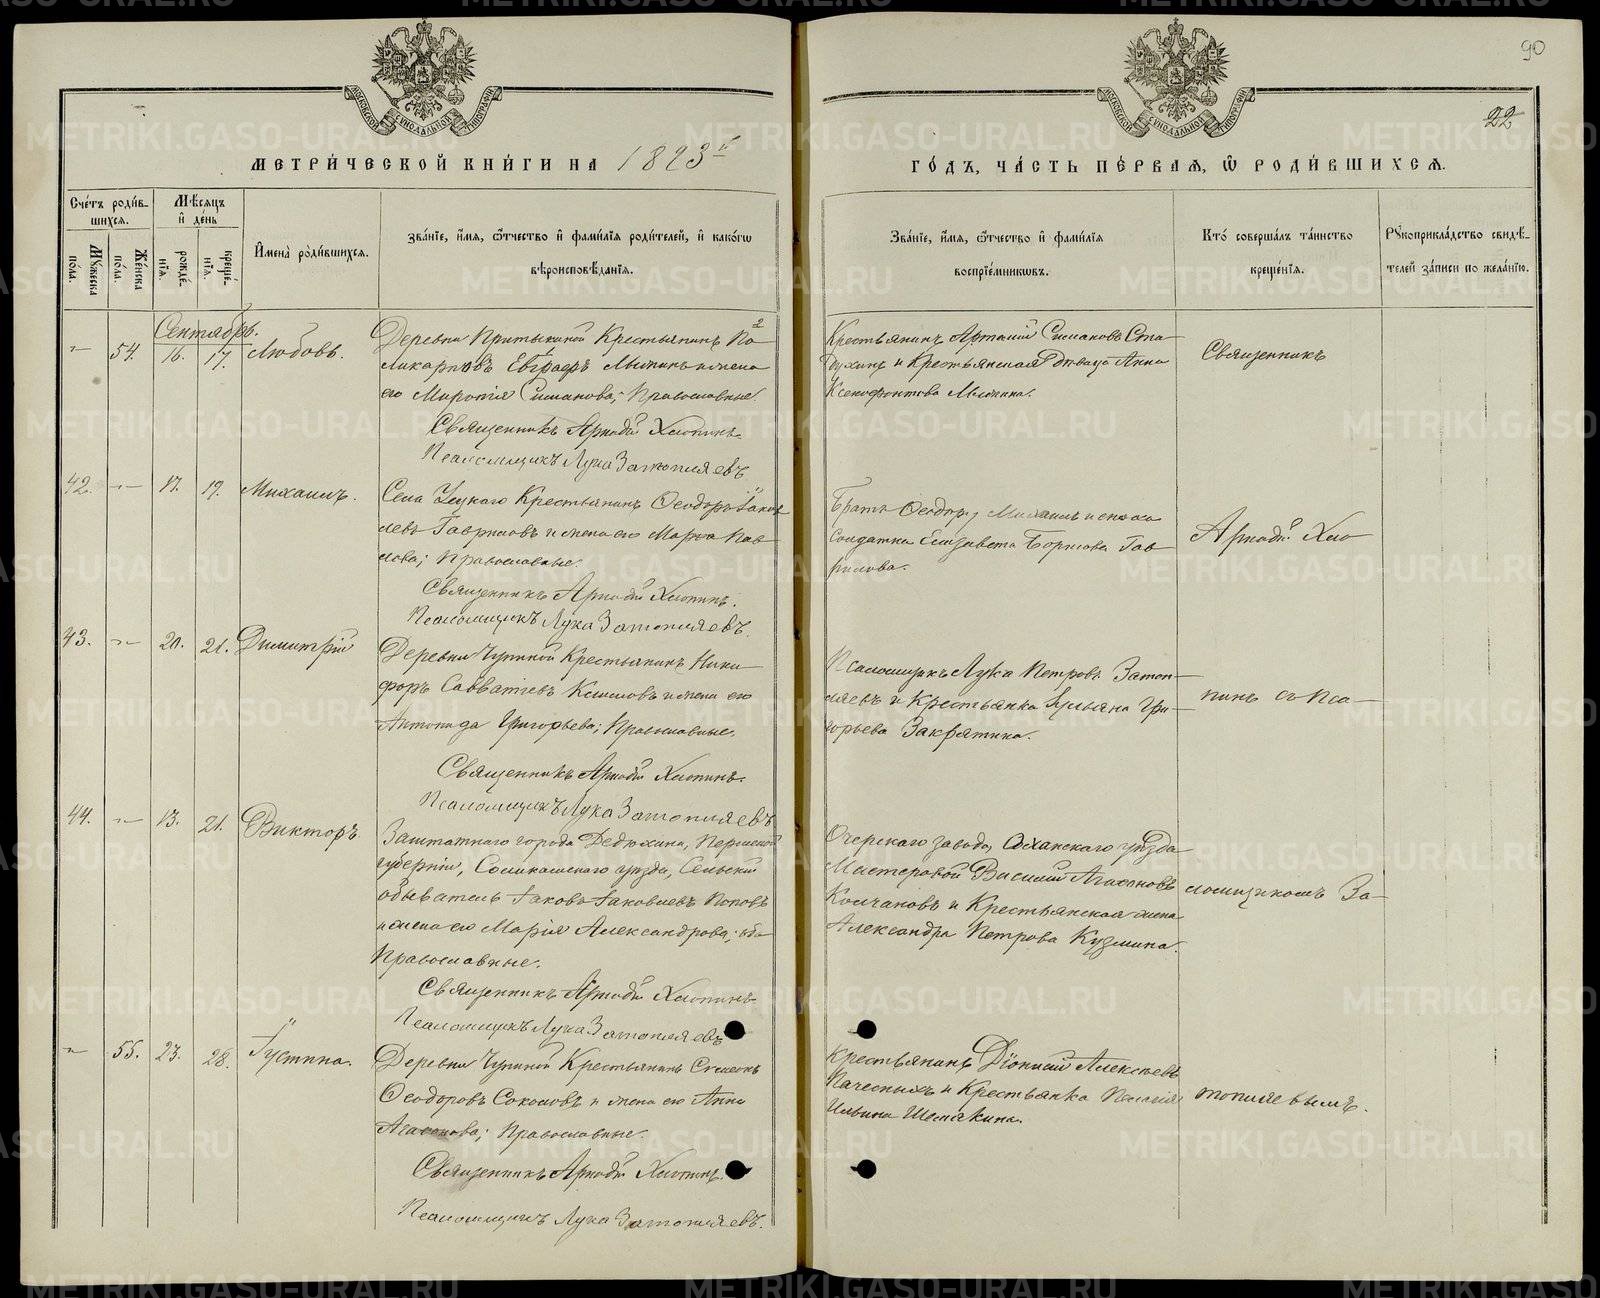 90
22
МОСКОВСКОЙ СѴНОДАЛЬНОЙ ТИПОГРАФІИ
МОСКОВСКОЙ СѴНОДАЛЬНОЙ ТИПОГРАФІИ
МЕТРИ́ЧЕСКОЙ КНИ́ГИ НА 1893й
ГО́ДЪ, ЧА́СТЬ ПЕ́РВАЯ, Ѿ РОДИ́ВШИХСЯ.
Сче́тъ роди́в-
шихся.
Мꙋ́жеска
по́ла.
Же́нска
по́ла.
Мѣ́сяцъ
и де́нь
рожде́-
нія.
креще́-
нія.
Имена̀ роди́вшихся.
Зва́ніе, и́мя, ѻ́тчество и фами́лія роди́телей, и како́гѡ
вѣроисповѣ́данія.
Зва́ніе, и́мя, ѻ́тчество и фами́лія
воспріе́мниковъ.
Кто́ соверша́лъ та́инство
креще́нія.
Рꙋкоприкла́дство свидѣ́-
телей за́писи по жела́нію.
Сентябрь.
54. 16. 17. Любовь.
Деревни Притыкиной Крестьянинъ По-
ликарповъ Евграфъ и жена
его Симакова; Православные.
Священникъ Аркадій Хлопинъ.
Псаломщикъ Лука Затопляевъ
Крестьянинъ Симаковъ Ста-
и Крестьянская Дѣвица Анна
Ксенофонтова
Священникъ
42. 17. 19. Михаилъ.
Села Крестьянинъ Ѳеодоръ Іаков-
левъ Гавриловъ и жена его Марѳа Пав-
лова; Православные.
Священникъ Аркадій Хлопинъ.
Псаломщикъ Лука Затопляевъ.
Братъ Ѳеодора, Михаилъ и
Солдатка Елизавета Борисова Гав-
рилова.
Аркадій Хло-
43. 20. 21. Димитрій
Деревни Чупиной Крестьянинъ Ники-
форъ Савватіевъ Климовъ и жена его
Антонида Григорьева; Православные.
Священникъ Аркадій Хлопинъ.
Псаломщикъ Лука Затопляевъ
Псаломщикъ Лука Петровъ Затоп-
ляевъ и Крестьянка Гри-
горьева Закрятина.
пинъ съ Пса-
44. 13. 21. Викторъ
Заштатнаго города Дедюхина, Пермской
губерніи, Соликамскаго уѣзда, Сельскій
обыватель Іаковъ Іаковлевъ Поповъ
и жена его Марія Александрова; оба
Православные.
Священникъ Аркадій Хлопинъ
Псаломщикъ Лука Затопляевъ
Очерскаго завода, Оханскаго уѣзда
Мастеровой Василій Агафоновъ
Колчановъ и Крестьянская жена
Александра Петрова Кузмина.
ломщикомъ За-
55. 23. 28. Іустина.
Деревни Чупиной Крестьянинъ Симеонъ
Ѳеодоровъ Соколовъ и жена его Анна
Агафонова; Православные.
Священникъ Аркадій Хлопинъ.
Псаломщикъ Лука Затопляевъ.
Крестьянинъ Діонисій Алексѣевъ
и Крестьянка Пелагія
Ильина Шемякина.
топляевымъ.
METRIKI.GASO-URAL.RU